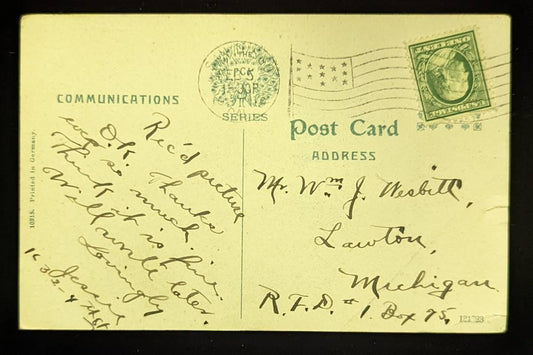 COMMUNICATIONS
Rec'd picture
O.K. Thanks
ever so much.
Think it is fine.
Will write later.
Lovingly
Jessie
10918. Printed in Germany.
SERIES
Post Card
ADDRESS
Mr. Wm J. Nesbitt,
Lawton,
Michigan
R.F.D. # 1 Box 75.
121 23